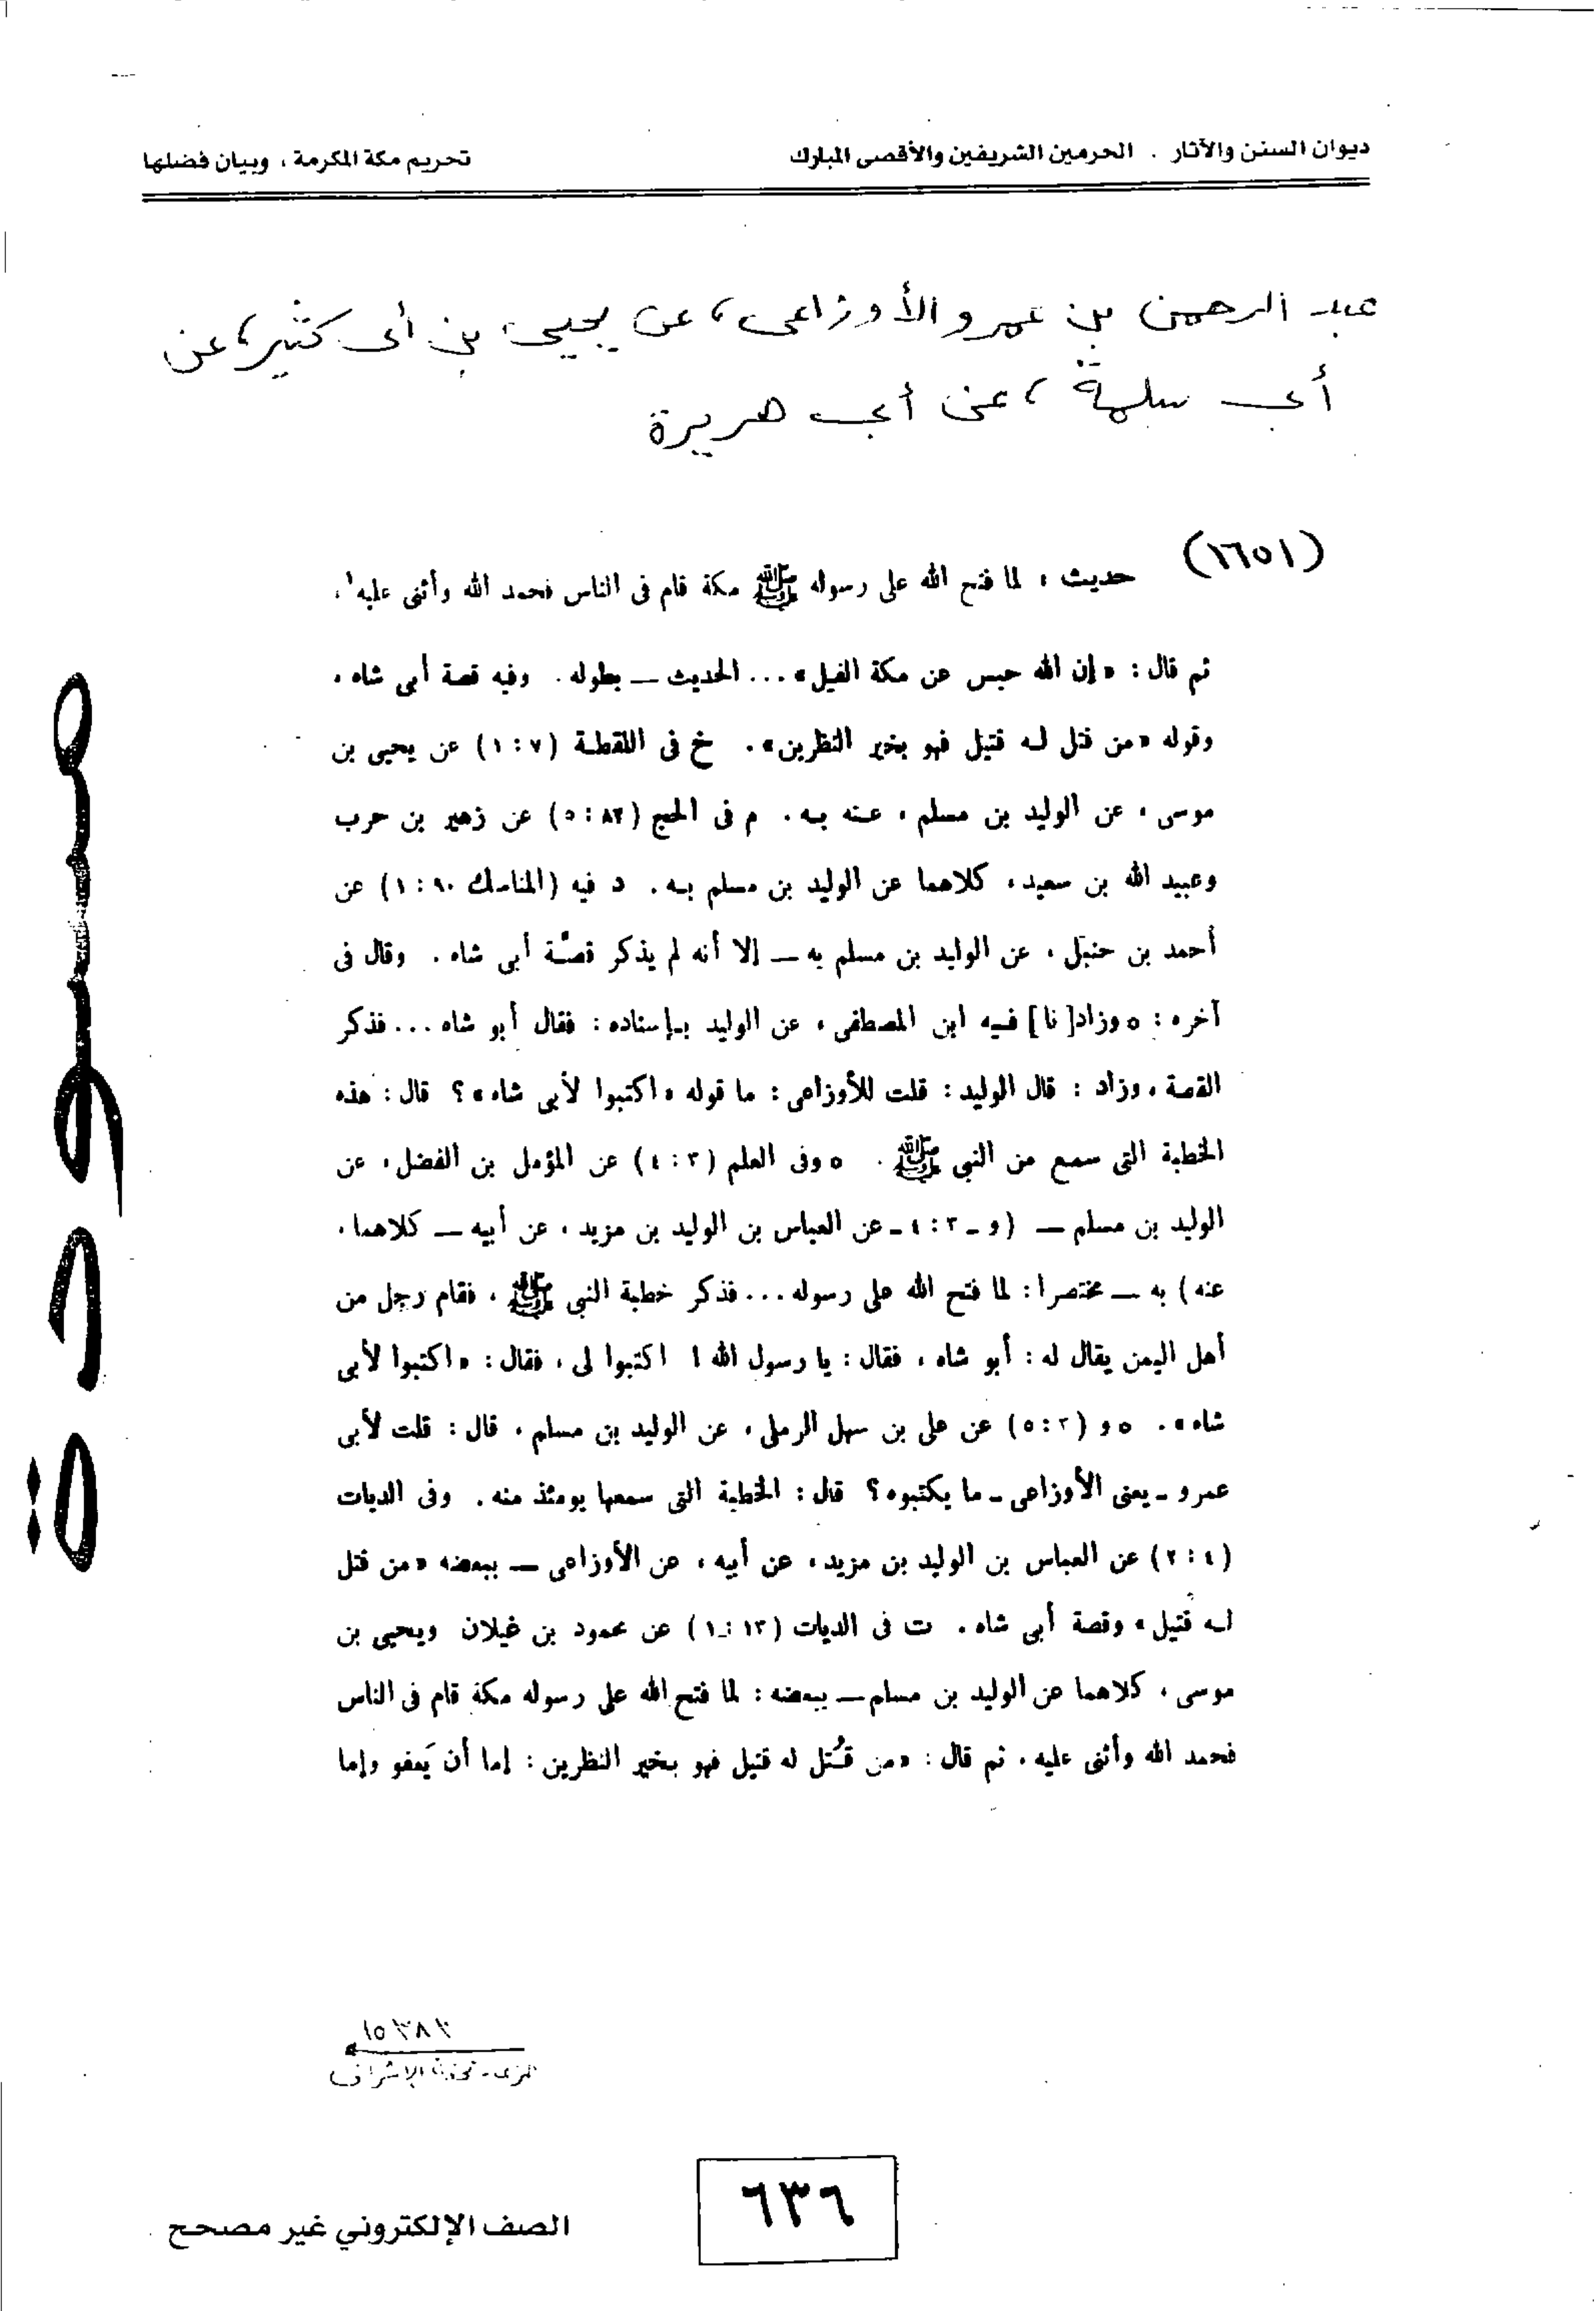 ديوان السنن والآثار . الحرمين الشريفين والأقصى المبارك
تحريم مكة المكرمة ، وبيان فضلها
عبد الرحمن بن عمرو الأوزاعى ، عن يحيى بن أبى كثير ، عن
أبى سلمة ، عن أبى هريرة
(١٦٥١) حديث : لما فتح الله على رسوله ﷺ مكة قام فى الناس فحمد الله وأثنى عليه ،
ثم قال : «إن الله حبس عن مكة الفيل» ... الحديث ــ بطوله . وفيه قصة أبى شاه ،
وقوله «من قتل لـه قتيل فهو بخير النظرين» . خ فى اللقطة (٧ : ١) عن يحيى بن
موسى ، عن الوليد بن مسلم ، عـنه بـه . م فى الحج (٨٢ : ٥) عن زهير بن حرب
وعبيد الله بن سعيد ، كلاهما عن الوليد بن مسلم بـه . د فيه (المناسك ٩٠ : ١) عن
أحمد بن حنبل ، عن الوليد بن مسلم به ــ إلا أنه لم يذكر قصّـة أبى شاه . وقال فى
آخره : ٥ وزاد[نا] فـيه ابن المصطفى ، عن الوليد بـإسناده : فقال أبو شاه ... فذكر
القصة ، وزاد : قال الوليد : قلت للأوزاعى : ما قوله «اكتبوا لأبى شاه» ؟ قال : هذه
الخطبة التى سمع من النبى ﷺ . ٥ وفى العلم (٣ : ٤) عن المؤمل بن الفضل ، عن
الوليد بن مسلم ــ (و ـ ٣ : ٤ ـ عن العباس بن الوليد بن مزيد ، عن أبيه ــ كلاهما ،
عنه) به ــ مختصرا : لما فتح الله على رسوله ... فذكر خطبة النبى ﷺ ، فقام رجل من
أهل اليمن يقال له : أبو شاه ، فقال : يا رسول الله ! اكتبوا لى ، فقال : «اكتبوا لأبى
شاه» . ٥ و (٣ : ٥) عن على بن سهل الرملى ، عن الوليد بن مسلم ، قال : قلت لأبى
عمرو ـ يعنى الأوزاعى ـ ما يكتبوه ؟ قال : الخطبة التى سمعها يومئذ منه . وفى الديات
(٤ : ٢) عن العباس بن الوليد بن مزيد ، عن أبيه ، عن الأوزاعى ــ ببعضه «من قتل
لـه قتيل» وقصة أبى شاه . ت فى الديات (١٣ : ١) عن محمود بن غيلان ويحيى بن
موسى ، كلاهما عن الوليد بن مسلم ــ ببعضه : لما فتح الله على رسوله مكة قام فى الناس
فحمد الله وأثنى عليه ، ثم قال : «من قُـتل له قتيل فهو بـخير النظرين : إما أن يَعفو وإما
١٥٣٨٣
المزى - تحفة الإشراف
٦٣٦
الصف الإلكتروني غير مصحح
مسودة